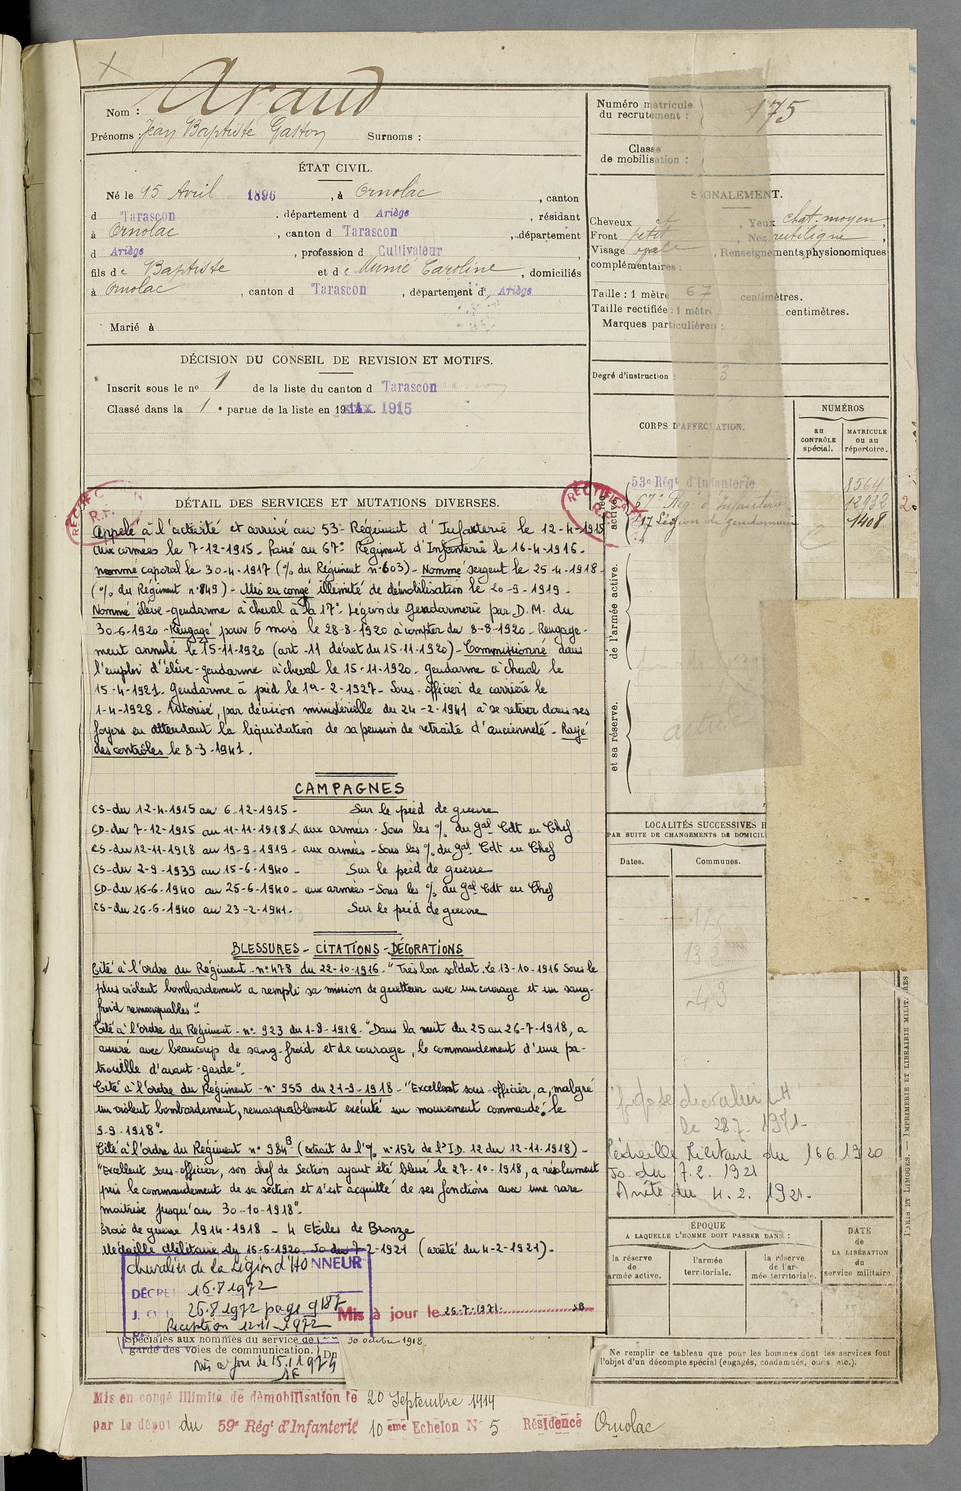 Nom : Araud
Prénoms : Jean Baptiste Gaston Surnoms :
ÉTAT CIVIL.
Né le 15 Avril 1896, à Ornolac, canton
d Tarascon, département d Ariège, résidant
à Ornolac, canton d Tarascon, département
d Ariège, profession d Cultivateur
fils de Baptiste et de Munié Caroline, domiciliés
à Ornolac, canton d Tarascon, département d Ariège
Marié à
DÉCISION DU CONSEIL DE REVISION ET MOTIFS.
Inscrit sous le no 1 de la liste du canton d Tarascon
Classé dans la 1e partie de la liste en 1915
Numéro matricule du recrutement : 175
Classe de mobilisation :
SIGNALEMENT.
Cheveux et Yeux chat. moyen
Front petit, Nez rectiligne
Visage, Renseignements physionomiques
complémentaires :
Taille : 1 mètre 67 centimètres.
Taille rectifiée : 1 mètre centimètres.
Marques particulières :
Degré d'instruction : 3
CORPS D'AFFECTATION.
NUMÉROS
au CONTRÔLE spécial.
MATRICULE ou au répertoire.
53e Régt d'Infanterie 8564
67e Régt d'Infanterie
17 Légion de gendarmerie 1408
de l'armée active.
et sa réserve.
DÉTAIL DES SERVICES ET MUTATIONS DIVERSES.
Appelé à l'activité et arrivé au 53e Régiment d'Infanterie le 12-4-1915
Aux armées le 7-12-1915. Passé au 67e Régiment d'Infanterie le 16-4-1916.
nommé caporal le 30-4-1917 (% du Régiment n°603) - Nommé sergent le 25-4-1918
(% du Régiment n°849) - Mis en congé illimité de démobilisation le 20-9-1919.
Nommé élève-gendarme à cheval à la 17e Légion de Gendarmerie par D.M. du
30-6-1920 - Rengagé pour 6 mois le 28-8-1920 à compter du 8-8-1920. Rengage-
ment annulé le 15-11-1920 (art-11 décret du 15-11-1920) - Commissionné dans
l'emploi d'élève-gendarme à cheval le 15-11-1920. Gendarme à cheval le
15-4-1921. Gendarme à pied le 1er-2-1927 - Sous-officier de carrière le
1-4-1928. Autorisé, par décision ministérielle du 24-2-1941 à se retirer dans ses
foyers en attendant la liquidation de sa pension de retraite d'ancienneté - Rayé
des contrôles le 8-3-1941.
CAMPAGNES
CS-du 12-4-1915 au 6-12-1915 - Sur le pied de guerre
CD-du 7-12-1915 au 11-11-1918 - aux armées - Sous les % du Gal Cdt en Chef
CS-du 12-11-1918 au 19-9-1919 - aux armées - Sous les % du Gal Cdt en Chef
CS-du 2-9-1939 au 15-6-1940 - Sur le pied de guerre
CD-du 16-6-1940 au 25-6-1940 - aux armées - Sous les % du Gal Cdt en Chef
CS-du 26-6-1940 au 23-2-1941. Sur le pied de guerre
BLESSURES - CITATIONS - DÉCORATIONS
Cité à l'ordre du Régiment - n°478 du 22-10-1916 - "Très bon soldat. Le 13-10-1916 sous le
plus violent bombardement a rempli sa mission de guetteur avec un courage et un sang-
froid remarquables".
Cité à l'ordre du Régiment - n° 923 du 1-8-1918. "Dans la nuit du 25 au 26-7-1918, a
assuré avec beaucoup de sang-froid et de courage, le commandement d'une pa-
trouille d'avant-garde".
Cité à l'ordre du Régiment - n° 955 du 21-9-1918 - "Excellent sous-officier, a, malgré
un violent bombardement, remarquablement exécuté un mouvement commandé, le
9-9-1918".
Cité à l'ordre du Régiment n° 984B (extrait de l'% n°152 de l'I.D. 12 du 12-11-1918) -
"Excellent sous-officier, son chef de Section ayant été blessé le 27-10-1918, a résolument
pris le commandement de sa section et s'est acquitté de ses fonctions avec une rare
maitrise jusqu'au 30-10-1918".
Croix de guerre 1914-1918 - 4 Etoiles de Bronze
Médaille Militaire du 16-6-1920. Jo du 7-2-1921 (arrêté du 4-2-1921).
Chevalier de la Légion d'HONNEUR
DÉCRET 16.8.1972
J.O. 26.8.1972 page 9187
Reception 12-11-1972
Mis à jour le 26-7-1971.
Spéciales aux hommes du service de
garde des voies de communication.
30 octobre 1918.
Mis à jour le 15.1.1974
LOCALITÉS SUCCESSIVES H
PAR SUITE DE CHANGEMENTS DE DOMICIL
Dates. Communes.
Proposé chevalier LH
le 28 7. 1971.
Médaille Militaire du 16 6 1920
Jo. du 7. 2. 1921
Arrêté du 4. 2. 1921.
ÉPOQUE
A LAQUELLE L'HOMME DOIT PASSER DANS :
la réserve de l'armée active.
l'armée territoriale.
la réserve de l'armée territoriale.
DATE de LA LIBÉRATION du service militaire.
Ne remplir ce tableau que pour les hommes dont les services font
l'objet d'un décompte spécial (engagés, condamnés, omis etc.).
Mis en congé illimité de démobilisation le 20 Septembre 1919
par le dépôt du 59e Régt d'Infanterie 10 ème Echelon No 5 Résidence Ornolac